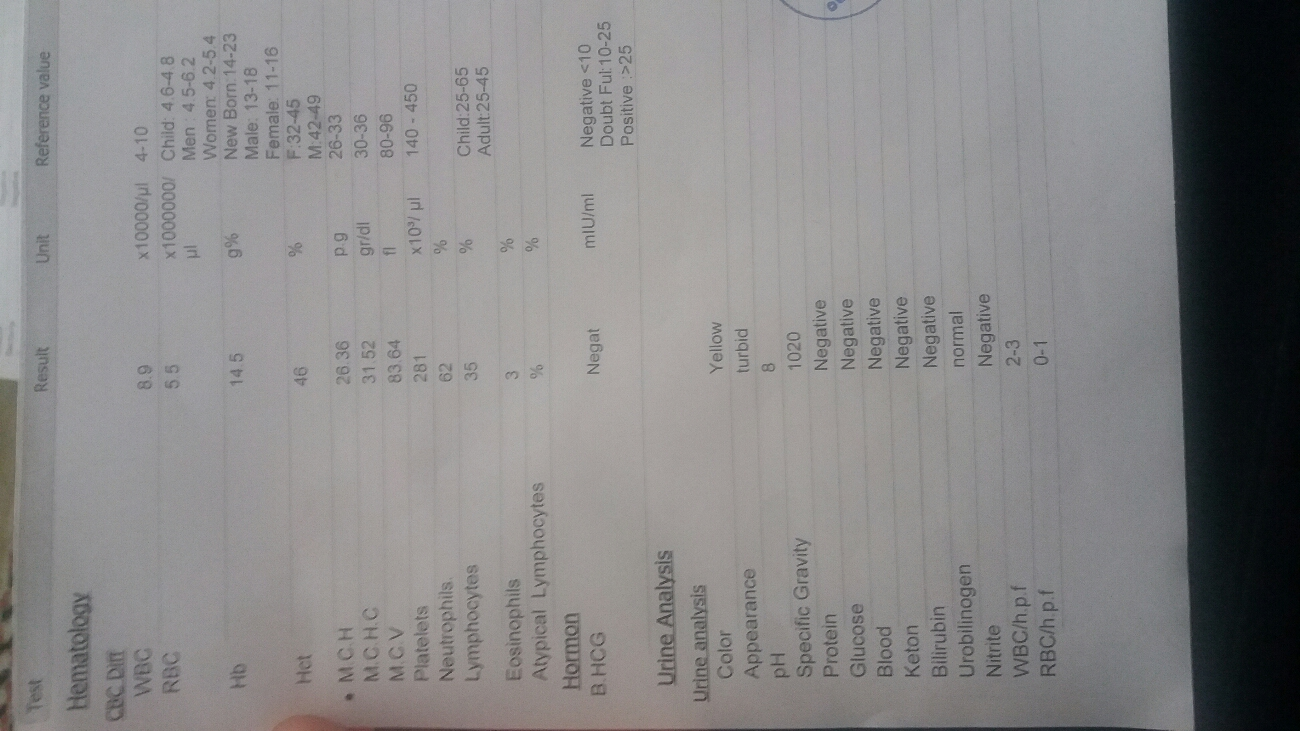 Test Result Unit Reference value
Hematology
CBC Diff
WBC 8.9 x10000/µl 4-10
RBC 5.5 x1000000/ Child: 4.6-4.8
µl Men : 4.5-6.2
Women: 4.2-5.4
Hb 14.5 g% New Born:14-23
Male: 13-18
Female: 11-16
Hct 46 % F:32-45
M:42-49
• M.C.H 26.36 p.g 26-33
M.C.H.C 31.52 gr/dl 30-36
M.C.V 83.64 fl 80-96
Platelets 281 x10³/ µl 140 - 450
Neutrophils. 62 %
Lymphocytes 35 % Child:25-65
Adult:25-45
Eosinophils 3 %
Atypical Lymphocytes % %
Hormon
B.HCG Negat mIU/ml Negative <10
Doubt Ful:10-25
Positive :>25
Urine Analysis
Urine analysis
Color Yellow
Appearance turbid
pH 8
Specific Gravity 1020
Protein Negative
Glucose Negative
Blood Negative
Keton Negative
Bilirubin Negative
Urobilinogen normal
Nitrite Negative
WBC/h.p.f 2-3
RBC/h.p.f 0-1